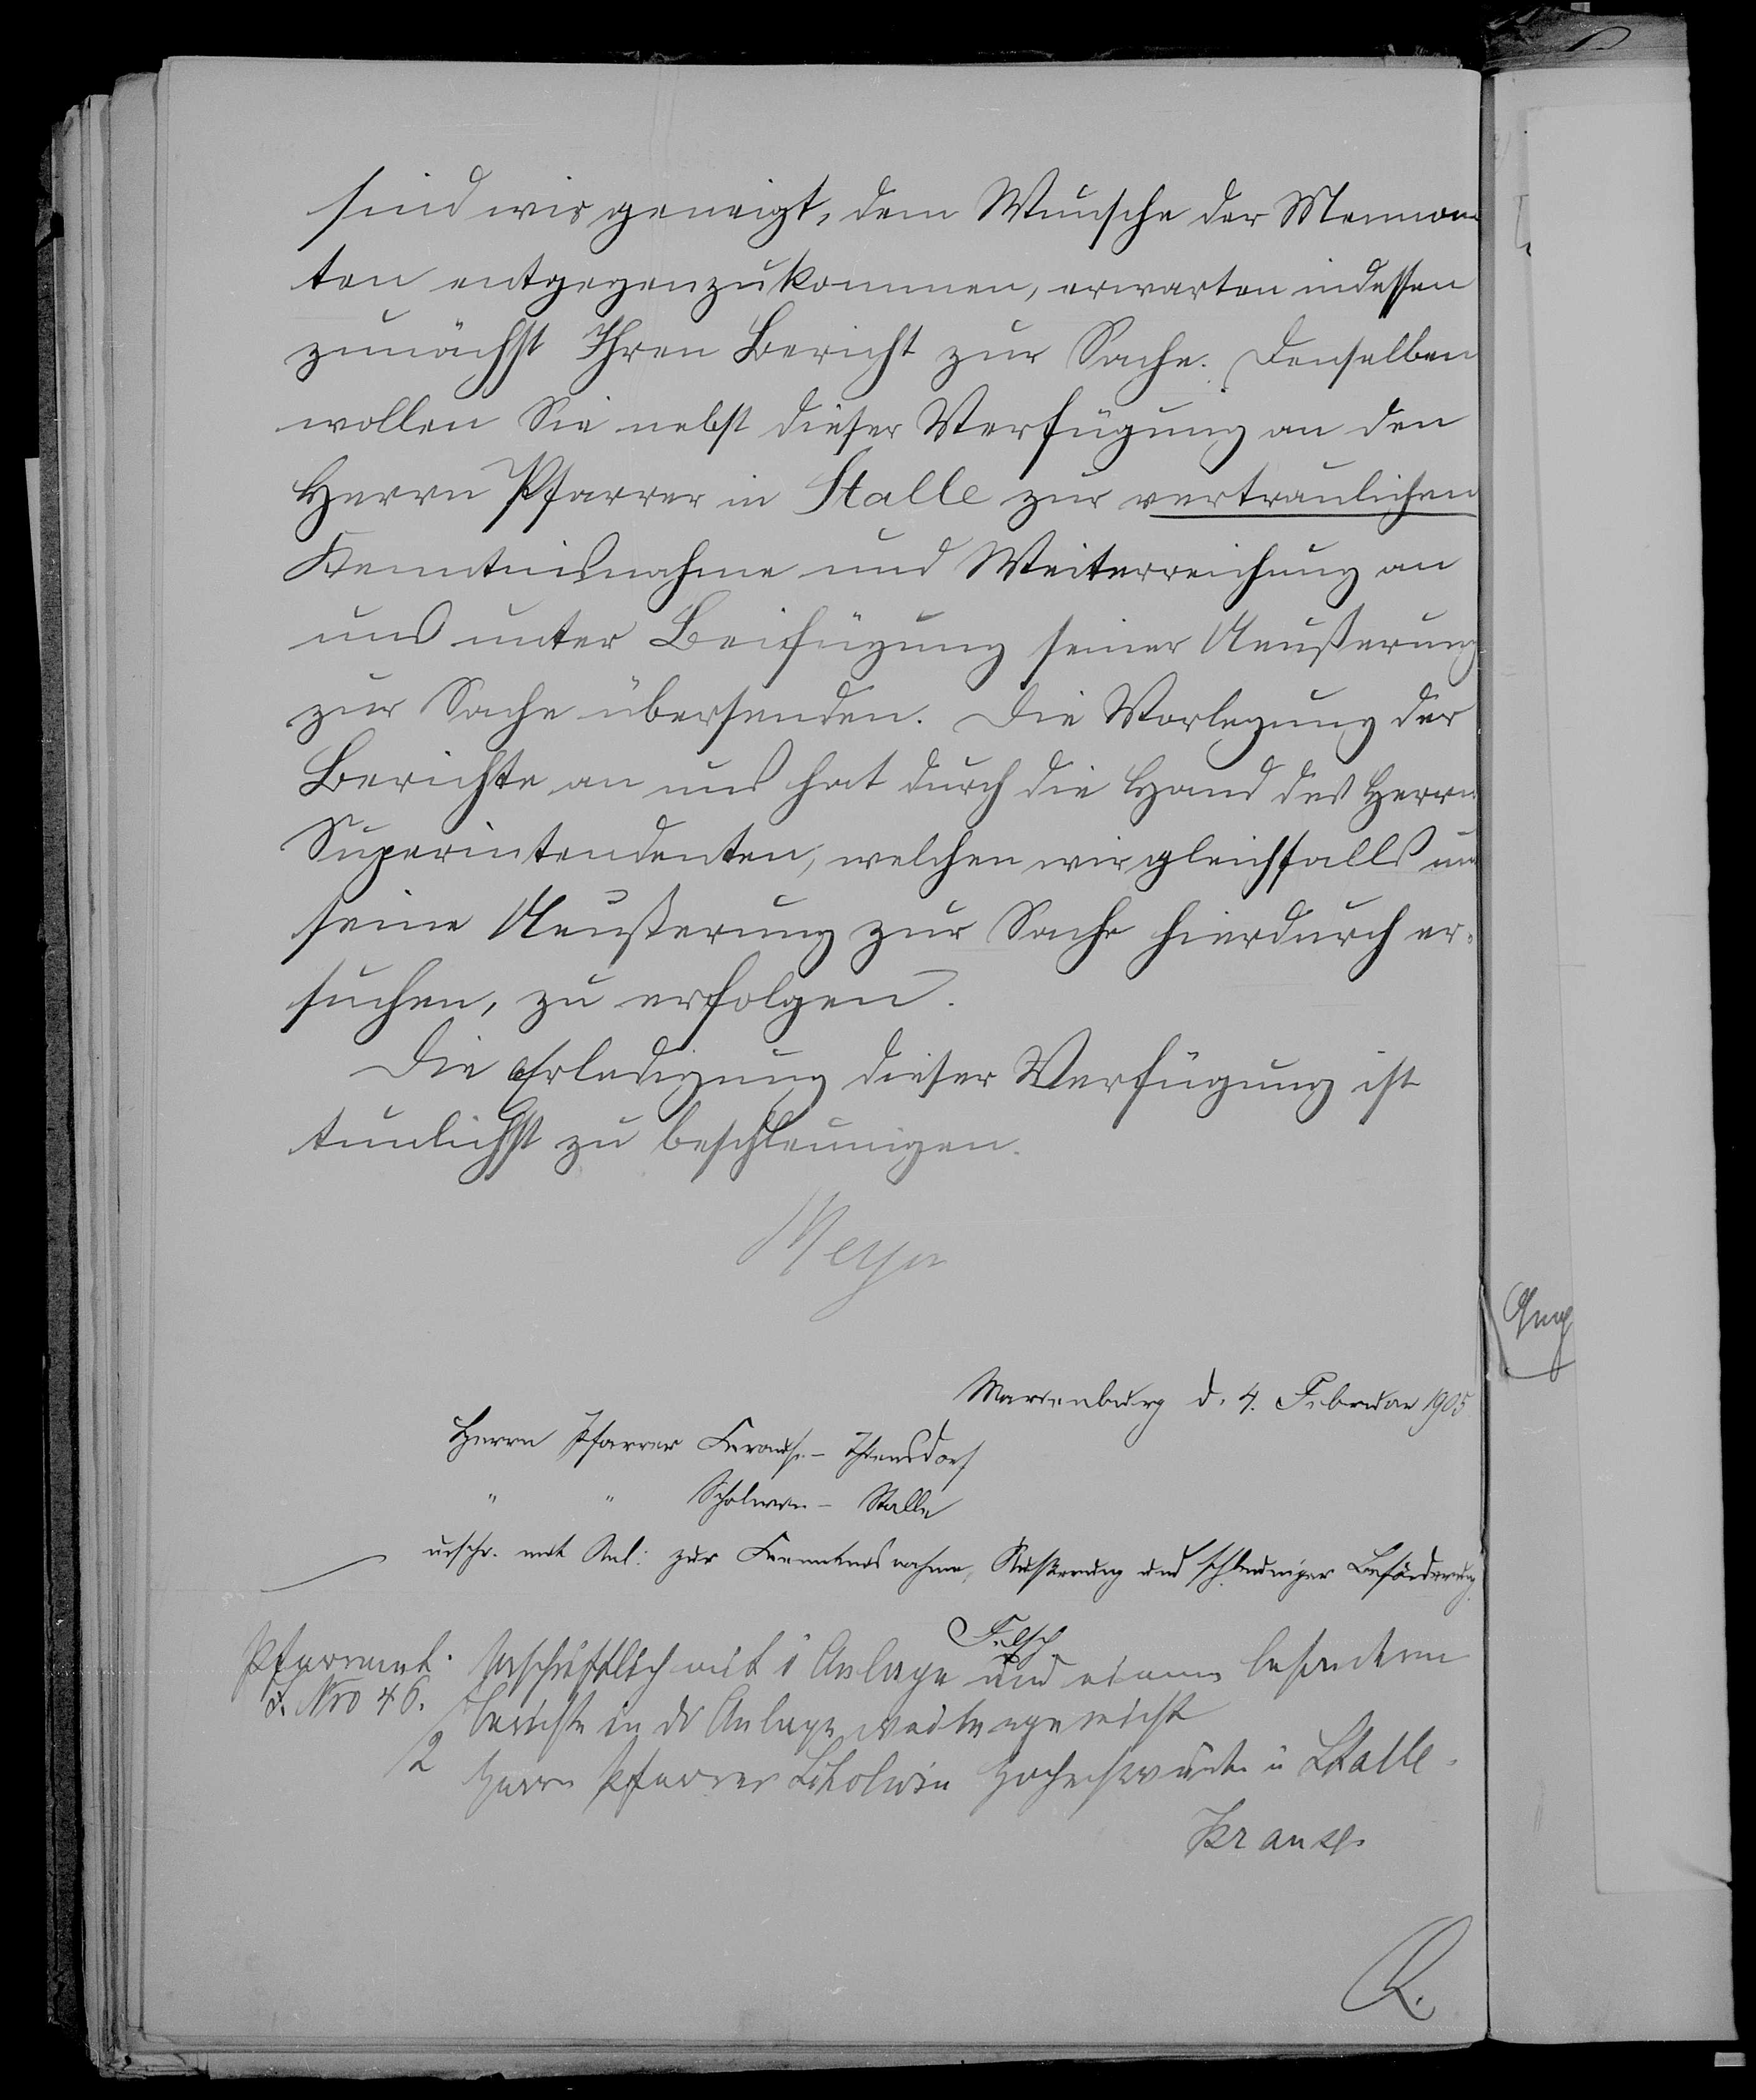 sind wir geneigt, dem Wunsche der Mennoni
ten entgegenzukommen, erwarten indessen
zunächst Ihren Bericht zur Sache. Denselben
wollen Sie nebst dieser Verfügung an den
Herrn Pfarrer in Stalle zur vertraulichen
Kenntnisnahme und Weiterreichung an
uns unter Beifügung seiner Aeußerung
zur Sache übersenden. Die Vorlegung der
Berichte an uns hat durch die Hand des Herrn
Superintendenten, welchen wir gleichfalls um
seine Aeußerung zur Sache hierdurch er-
suchen, zu erfolgen.
Die Erledigung dieser Verfügung ist
tunlichst zu beschleunigen.
Meyer
Marienburg d. 4. Februar 1905
Herrn Pfarrer Krause - Thiensdorf
" " Scholwin - Stalle
urschr. mit Anl: zur Kenntnisnahme, Äußerung und schleuniger Beförderung
Felsch
Pfarramt. Urschriftlich mit 1 Anlage und einem besonderen
J. Nro 46. Berichte in der Anlage weitergereicht
2 Herrn Pfarrer Scholwin Hochehrwürden in Stalle.
Krause.
R.